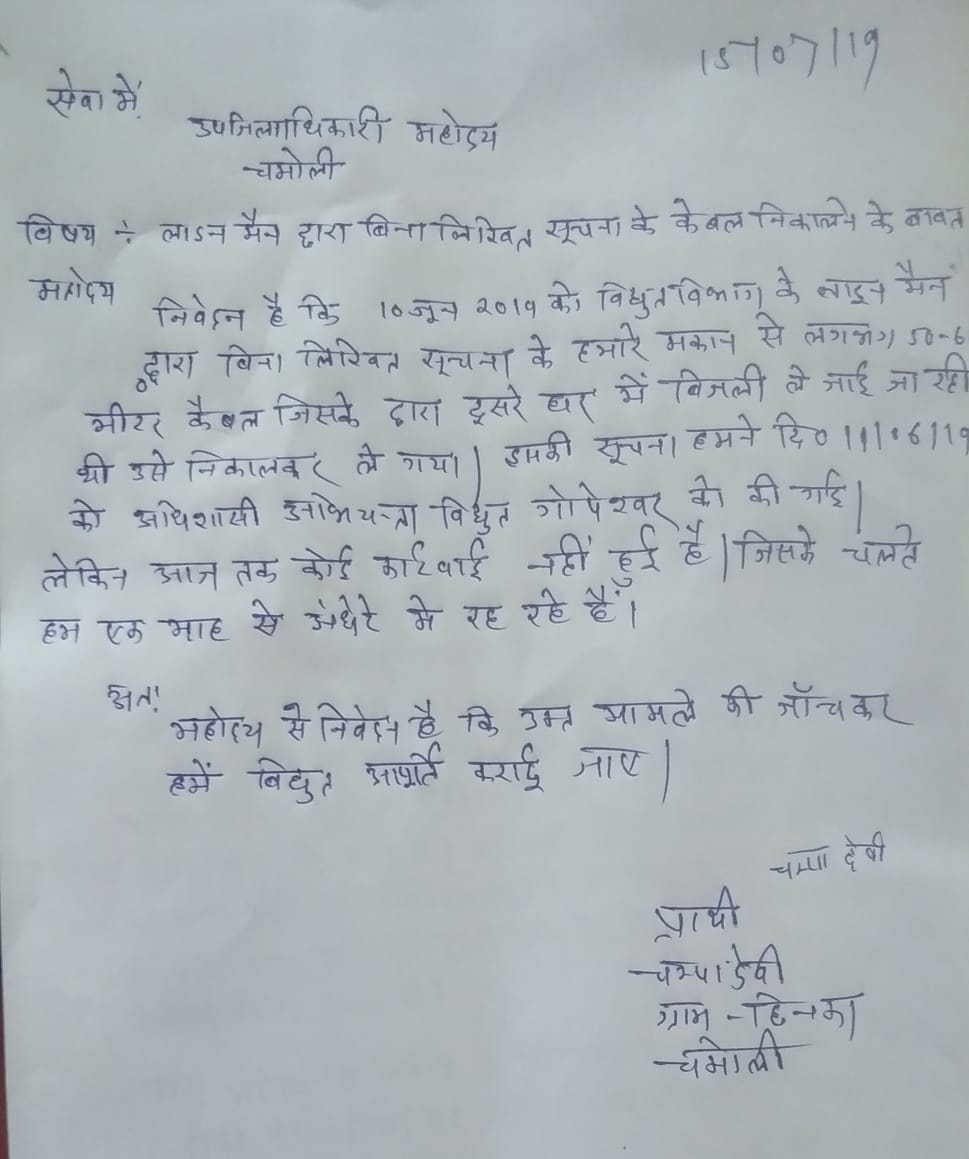 15/07/19
सेवा में,
उपजिलाधिकारी महोदय
चमोली
विषय ÷ लाइन मैन द्वारा बिना लिखित सूचना के केबल निकालने के बावत
महोदय
निवेदन है कि 10 जून 2019 को विधुत विभाग के लाइन मैन
द्वारा बिना लिखित सूचना के हमारे मकान से लगभग 50-6
मीटर कैबल जिसके द्वारा दूसरे घर में बिजली ले जाई जा रही
थी उसे निकालकर ले गया। इसकी सूचना हमने दि० 11/06/19
को अधिशासी अभियन्ता विधुत गोपेश्वर को की गई।
लेकिन आज तक कोई कार्रवाई नहीं हुई है। जिसके चलते
हम एक माह से अंधेरे मे रह रहे हैं।
अतः
महोदय से निवेदन है कि उक्त मामले की जाँच कर
हमें विधुत आपूर्ति कराई जाए।
चम्पा देवी
प्रार्थी
चम्पा देवी
ग्राम -
चमोली